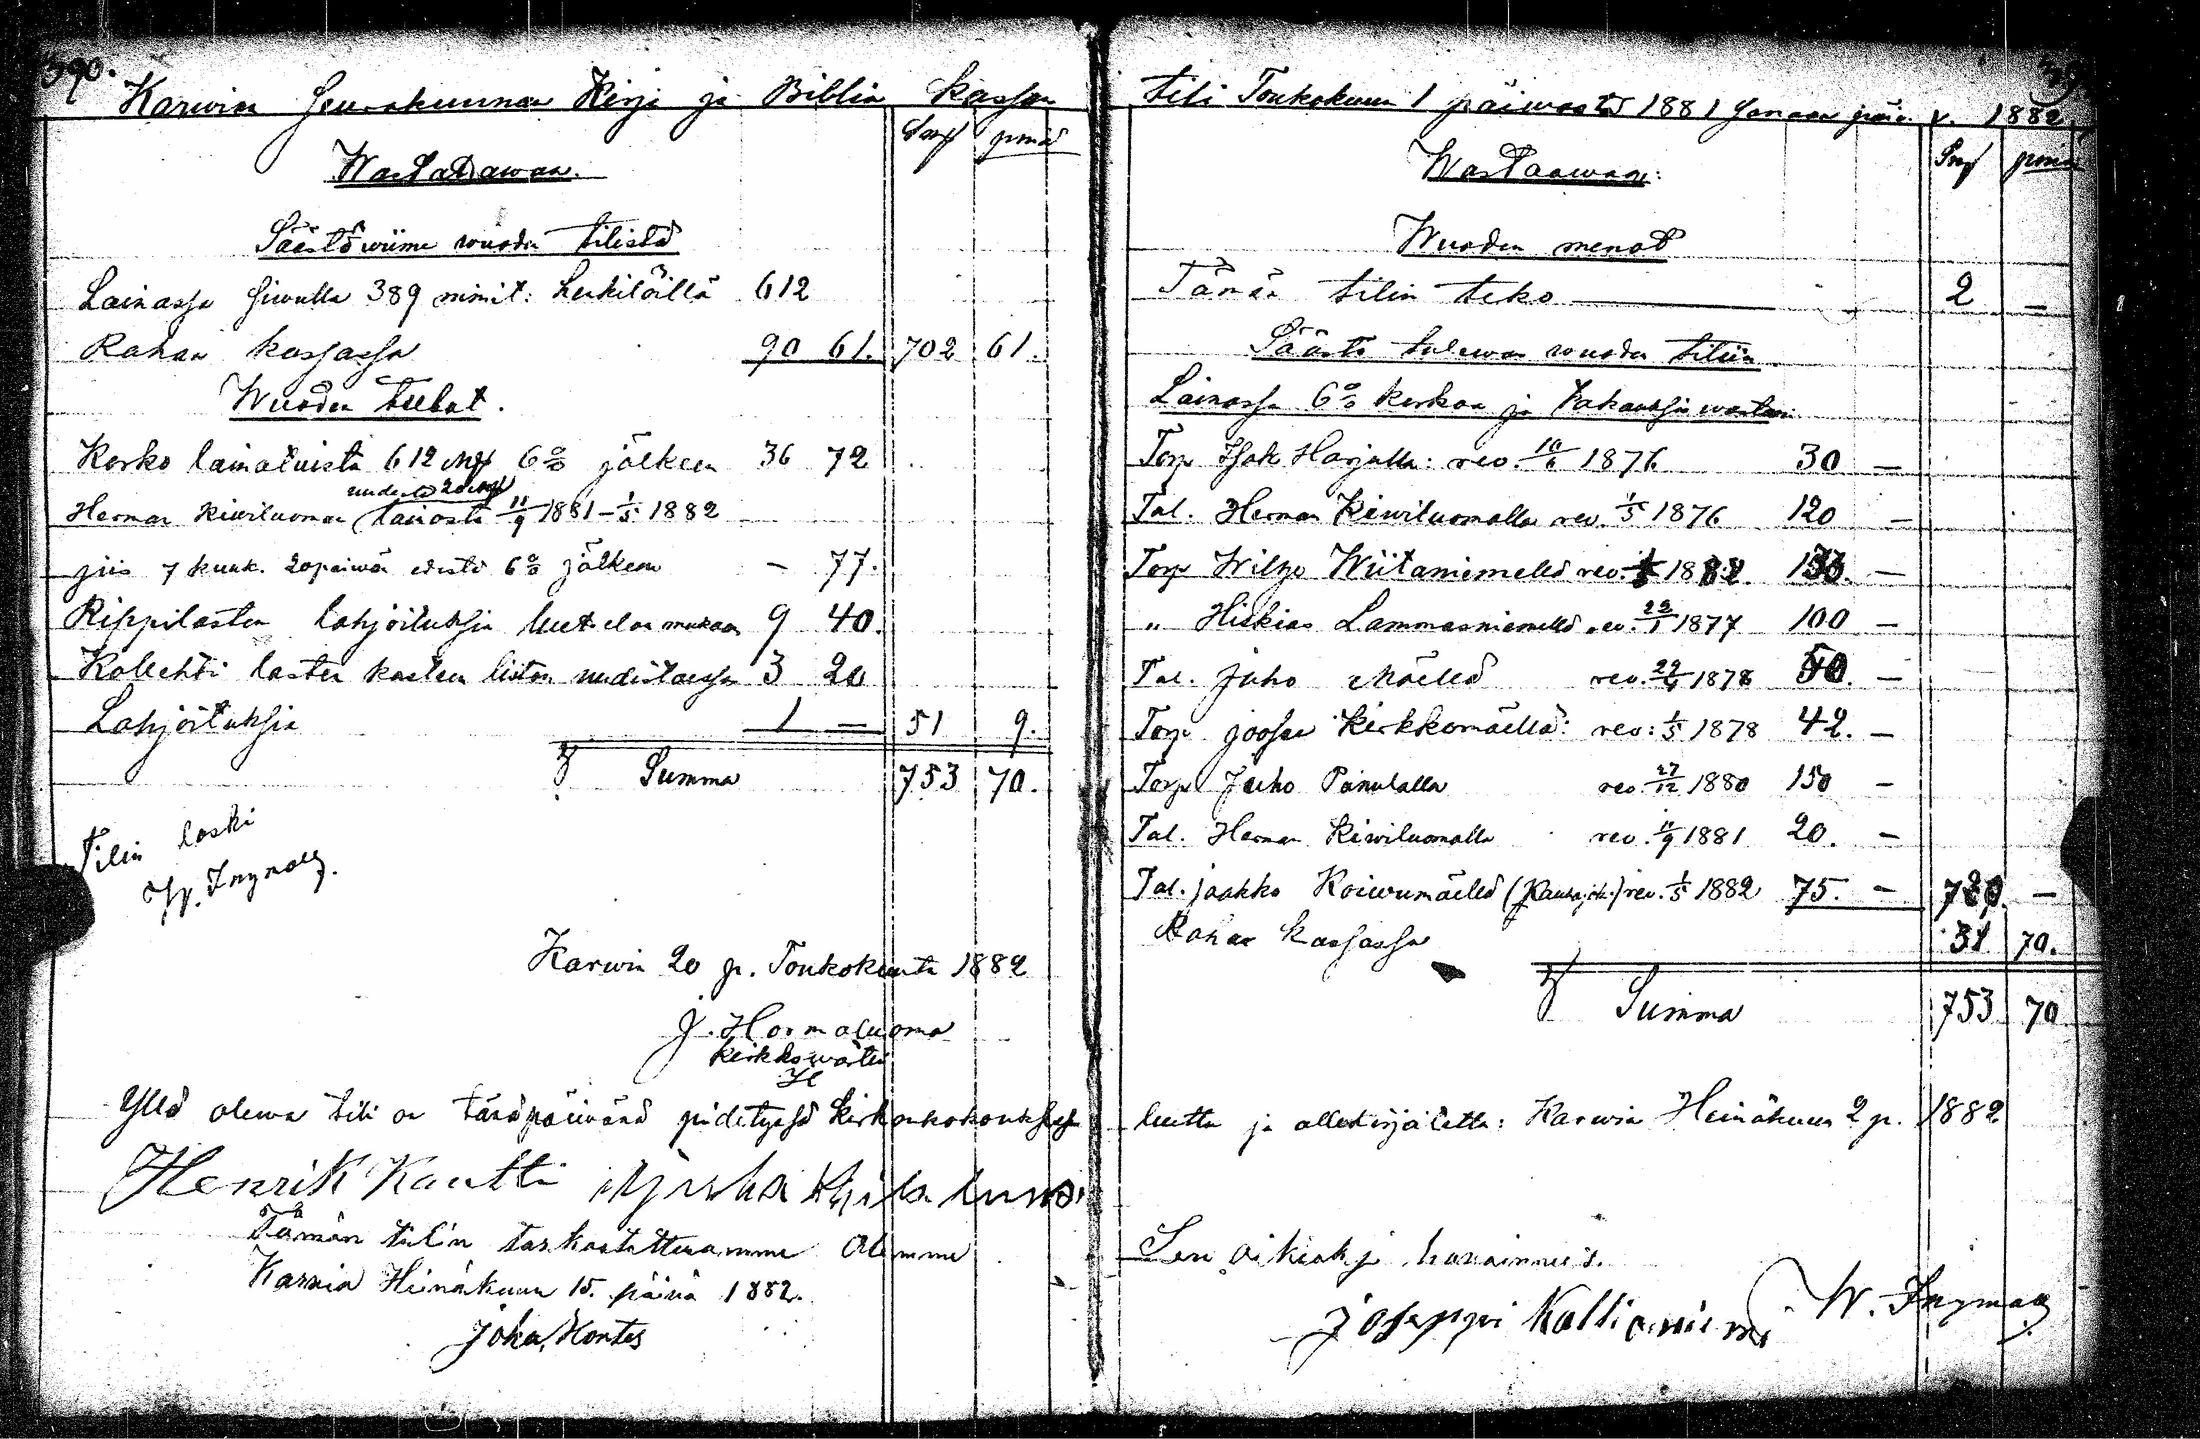 390.
Karwian Seurakunnan Kirja ja Biblia kassan
Smf pniä
Wastattawaa.
Säästö wiime wuoden tilistä
Lainassa siwulla 389 nimit: henkilöillä 612
Rahaa kassassa 90 61. 702 61.
Wuoden tulot.
Korko lainatuista 612 mf 6% jälkeen 36 72
Herman Kiwiluoman lainasta 11/9 1881 – 1/5 1882
siis 7 kuuk. 20 päiwän edestä 6% jälkeen – 77.
Rippilasten lahjoituksia luettelon mukaan 9 40.
Kollehti lasten kasteen liiton uudistaessa 3 20
Lahjoituksia 1 — 51 9.
Summa 753 70.
Tilin laski
Karwia 20 p. Toukokuuta 1882
J. Hormaluoma
kirkkowärti
Yllä olewa tili on tänäpäiwänä pidetyssä kirkonkokouksessa
Henrik Kautti
Tämän tilin tarkastettuamme Olemme
Karwia Heinäkuun 15. päivä 1882.
Juha Hontes
tili Toukokuun 1 päiwästä 1881 samaan päiw. v. 1882
Smf pniä
Wastaawaa:
Wuoden menot
Tämän tilin teko 2 —
Säästö tulewan wuoden tiliin
Lainassa 6% korkoa ja takauksia wastaan
Torp Isak Harjulla: rev. 10/6 1876 30 —
Tal. Herman Kiwiluomalla rev. 1/5 1876 120 —
Torp Wilpp Wiitaniemellä rev. 1882 133. —
" Hiskias Lammasniemellä rev. 1877 100 —
Tal. Juho Mäellä rev. 1878 50. —
Torp Joosse Kirkkomäellä: rev: 1/5 1878 42. —
Torp Juho Panulalla rev. 27/12 1880 150 —
Tal. Herman Kiwiluomalla rev. 11/9 1881 20. —
Tal. Jaakko Koiwumäellä (Kauhajoki) rev. 1/5 1882 75. — 720. —
Rahaa kassassa 31 70.
Summa 753 70
luettu ja allekirjoitettu: Karwia Heinäkuun 2 p. 1882
Sen oikiaksi hawainneet.
Joseppi Kallioniemi